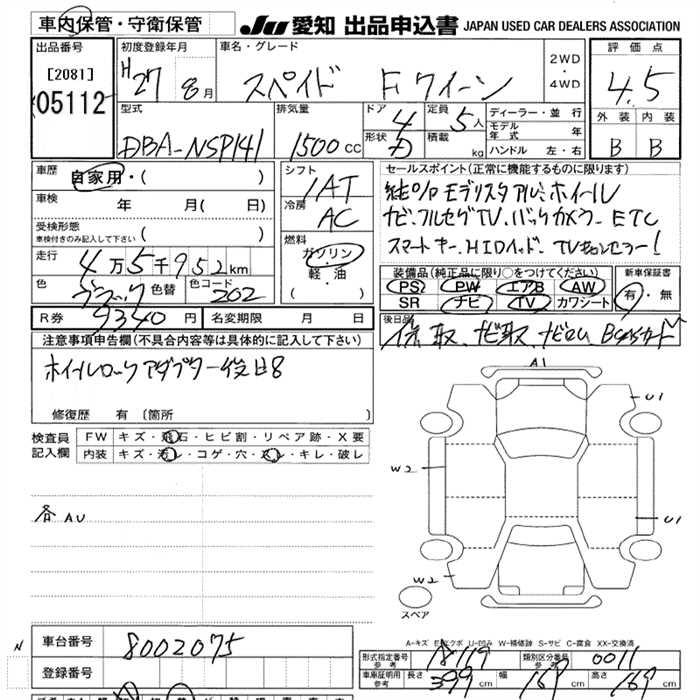 車内保管・守衛保管
JU 愛知 出品申込書 JAPAN USED CAR DEALERS ASSOCIATION
出品番号
[2081]
05112
初度登録年月
H27 8月
車名・グレード
スペイド Fクイーン
2WD
・
4WD
評価点
4.5
外装 内装
B B
型式
DBA-NSP141
排気量
1500 CC
ドア
4
形状
定員
5人
積載
kg
ディーラー・並行
モデル年式 年
ハンドル 左・右
車歴
自家用・( )
車検
年 月( 日)
受検形態
車検付きのみ記入して下さい ( )
走行
4万5千952km
色
ブラック
色替
色コード
202
R券
9340円
名変期限 月 日
シフト
IAT
冷房
AC
燃料
ガソリン
軽・油
( )
セールスポイント(正常に機能するものに限ります)
純正% モデリスタアルミホイール
ナビ.フルセグTV.バックカメラ. ETC
スマートキー.HIDヘッド. TVキャンセラー!
装備品(純正品に限り○をつけてください)
PS PW エアB AW
SR ナビ TV カワシート
新車保証書
有・無
後日品
保、取、ナビ取、ナビROM、BCASカード
注意事項申告欄(不具合内容等は具体的に記入して下さい)
ホイールロックアダプター後日8
修復歴 有〔箇所 〕
検査員
記入欄
FW キズ・飛石・ヒビ割・リペア跡・X要
内装 キズ・汚レ・コゲ・穴・スレ・キレ・破レ
各AU
A1
U1
W2
U1
W2
スペア
A-キズ E-エクボ U-凹み W-補修跡 S-サビ C-腐食 XX-交換済
N
車台番号
8002075
登録番号
形式指定番号
参考
18119
類別区分番号
参考
0011
車庫証明用
参考
長さ 399 cm 幅 169 cm 高さ 169 cm